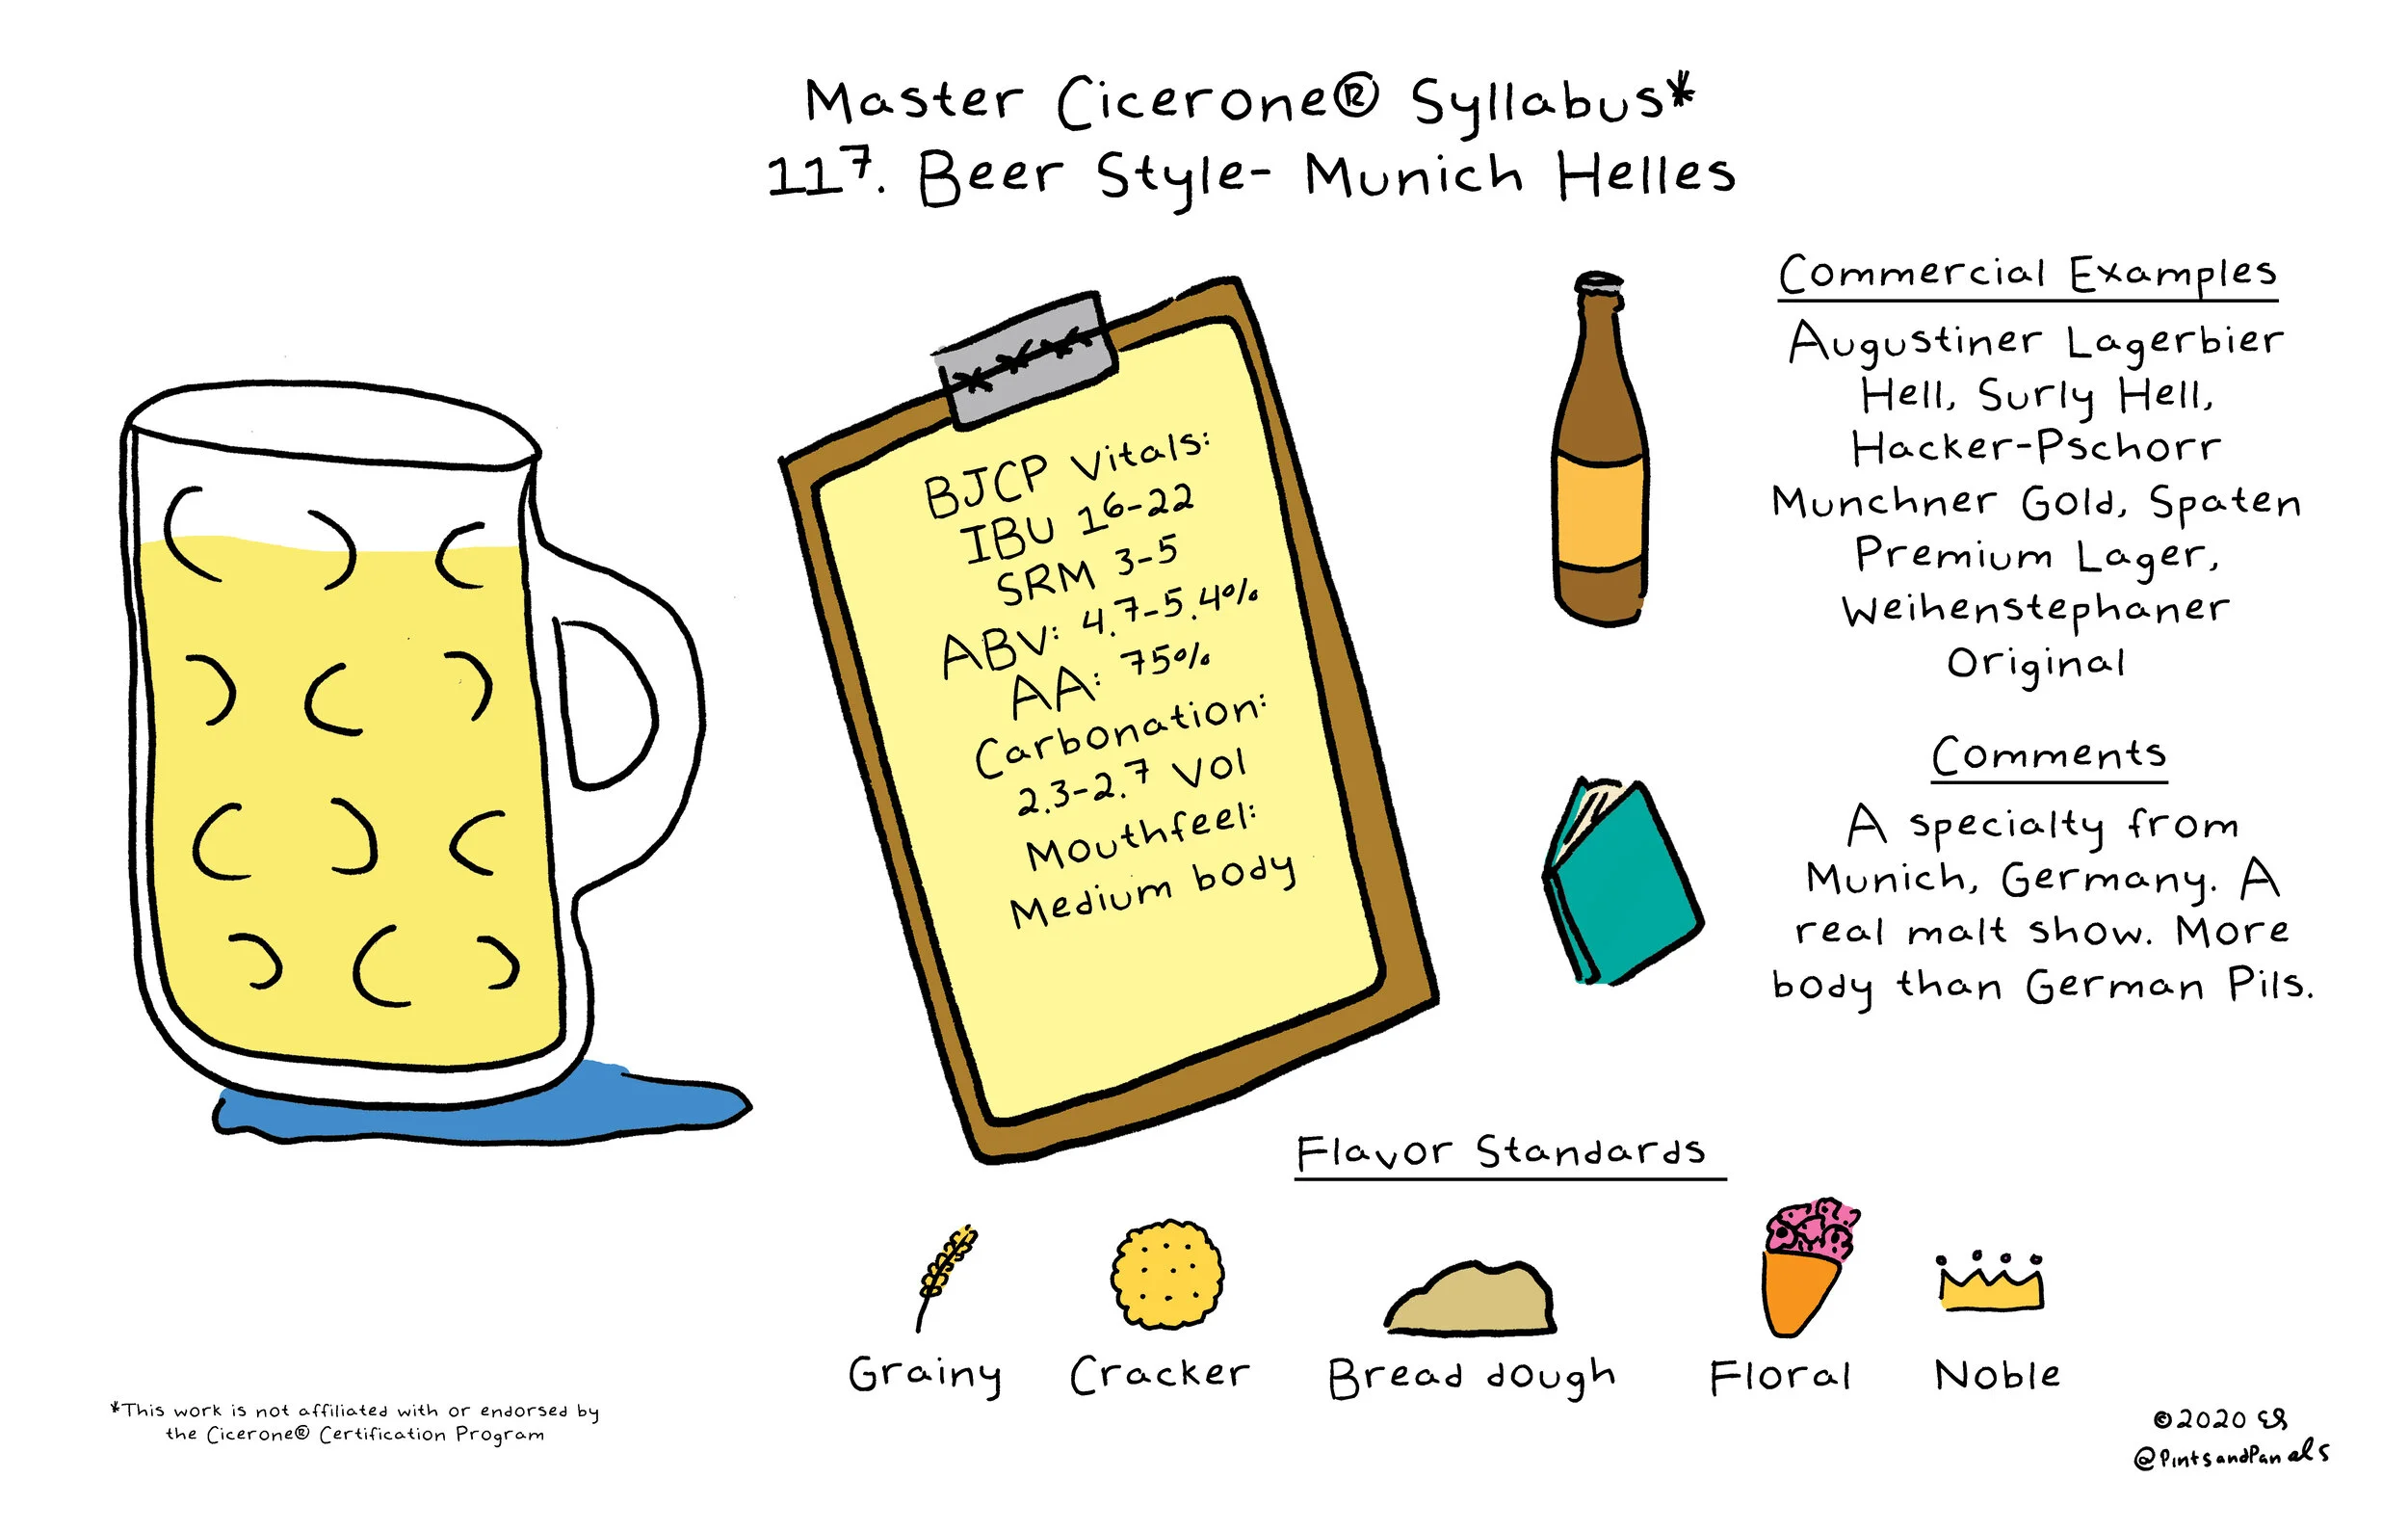 Master Cicerone® Syllabus*
117. Beer Style- Munich Helles
BJCP Vitals:
IBU 16-22
SRM 3-5
ABV: 4.7-5.4%
AA: 75%
Carbonation:
2.3-2.7 Vol
Mouthfeel:
Medium body
Commercial Examples
Augustiner Lagerbier
Hell, Surly Hell,
Hacker-Pschorr
Munchner Gold, Spaten
Premium Lager,
Weihenstephaner
Original
Comments
A specialty from
Munich, Germany. A
real malt show. More
body than German Pils.
Flavor Standards
Grainy
Cracker
Bread dough
Floral
Noble
*This work is not affiliated with or endorsed by
the Cicerone® Certification Program
©2020 ES
@PintsandPanels